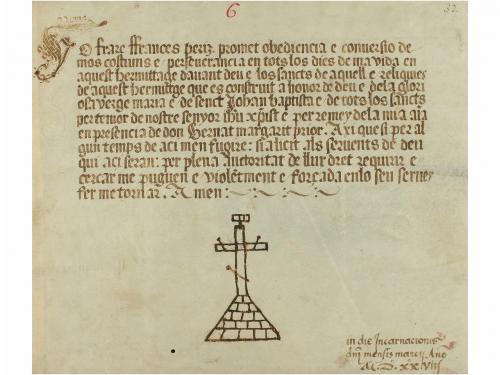 6
32
Yo frare ffrances periz promet obediencia e conversio de
mos costums e perseverancia en tots los dies de ma vida en
aquest hermitatge davant deu e los sancts de aquell e reliquies
de aquest hermitge que es construit a honor de deu e dela glori
osa verge maria e de senct Johan baptista e de tots los sancts
per temor de nostre senyor ihu xpist e per remey dela mia aĩa
en presencia de don bernat margarit prior. Axi que si per al
gun temps de aci men fugire: si a licit als servents de deu
qui aci seran: per plena Auctoritat de llur dret requirir e
cercar me puguen e violentment e forçada en lo seu servey
fer me tornar. Amen
in die Incarnacionis
dnj mensis marcij Ano
M. D. xx viij